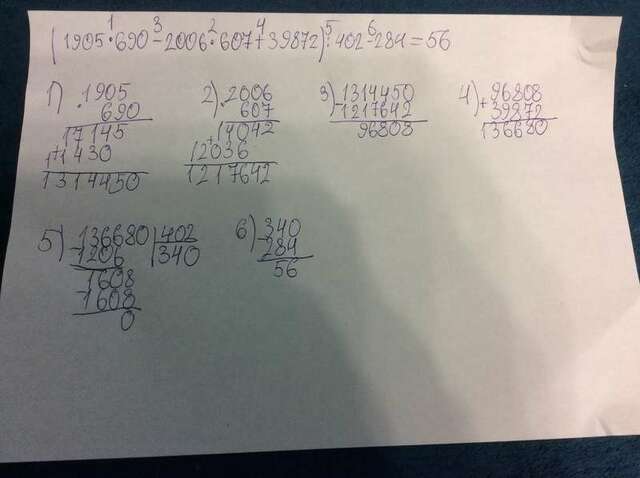 (1905·690-2006·607+39872):402-284=56
1 3 2 4 5 6
1) 1905 2) 2006 3) 1314450 4) 96808
· 690 · 607 - 1217642 + 39872
17145 14042 96808 136680
+ 11430 + 12036
1314450 1217642
5) 136680 402 6) 340
- 1206 340 - 284
1608 56
- 1608
0